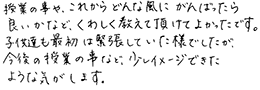 授業の事や、これからどんな風にがんばったら
良いかなど、くわしく教えて頂けてよかったです。
子供達も最初は緊張していた様でしたが、
今後の授業の事など、少しイメージできた
ような気がします。